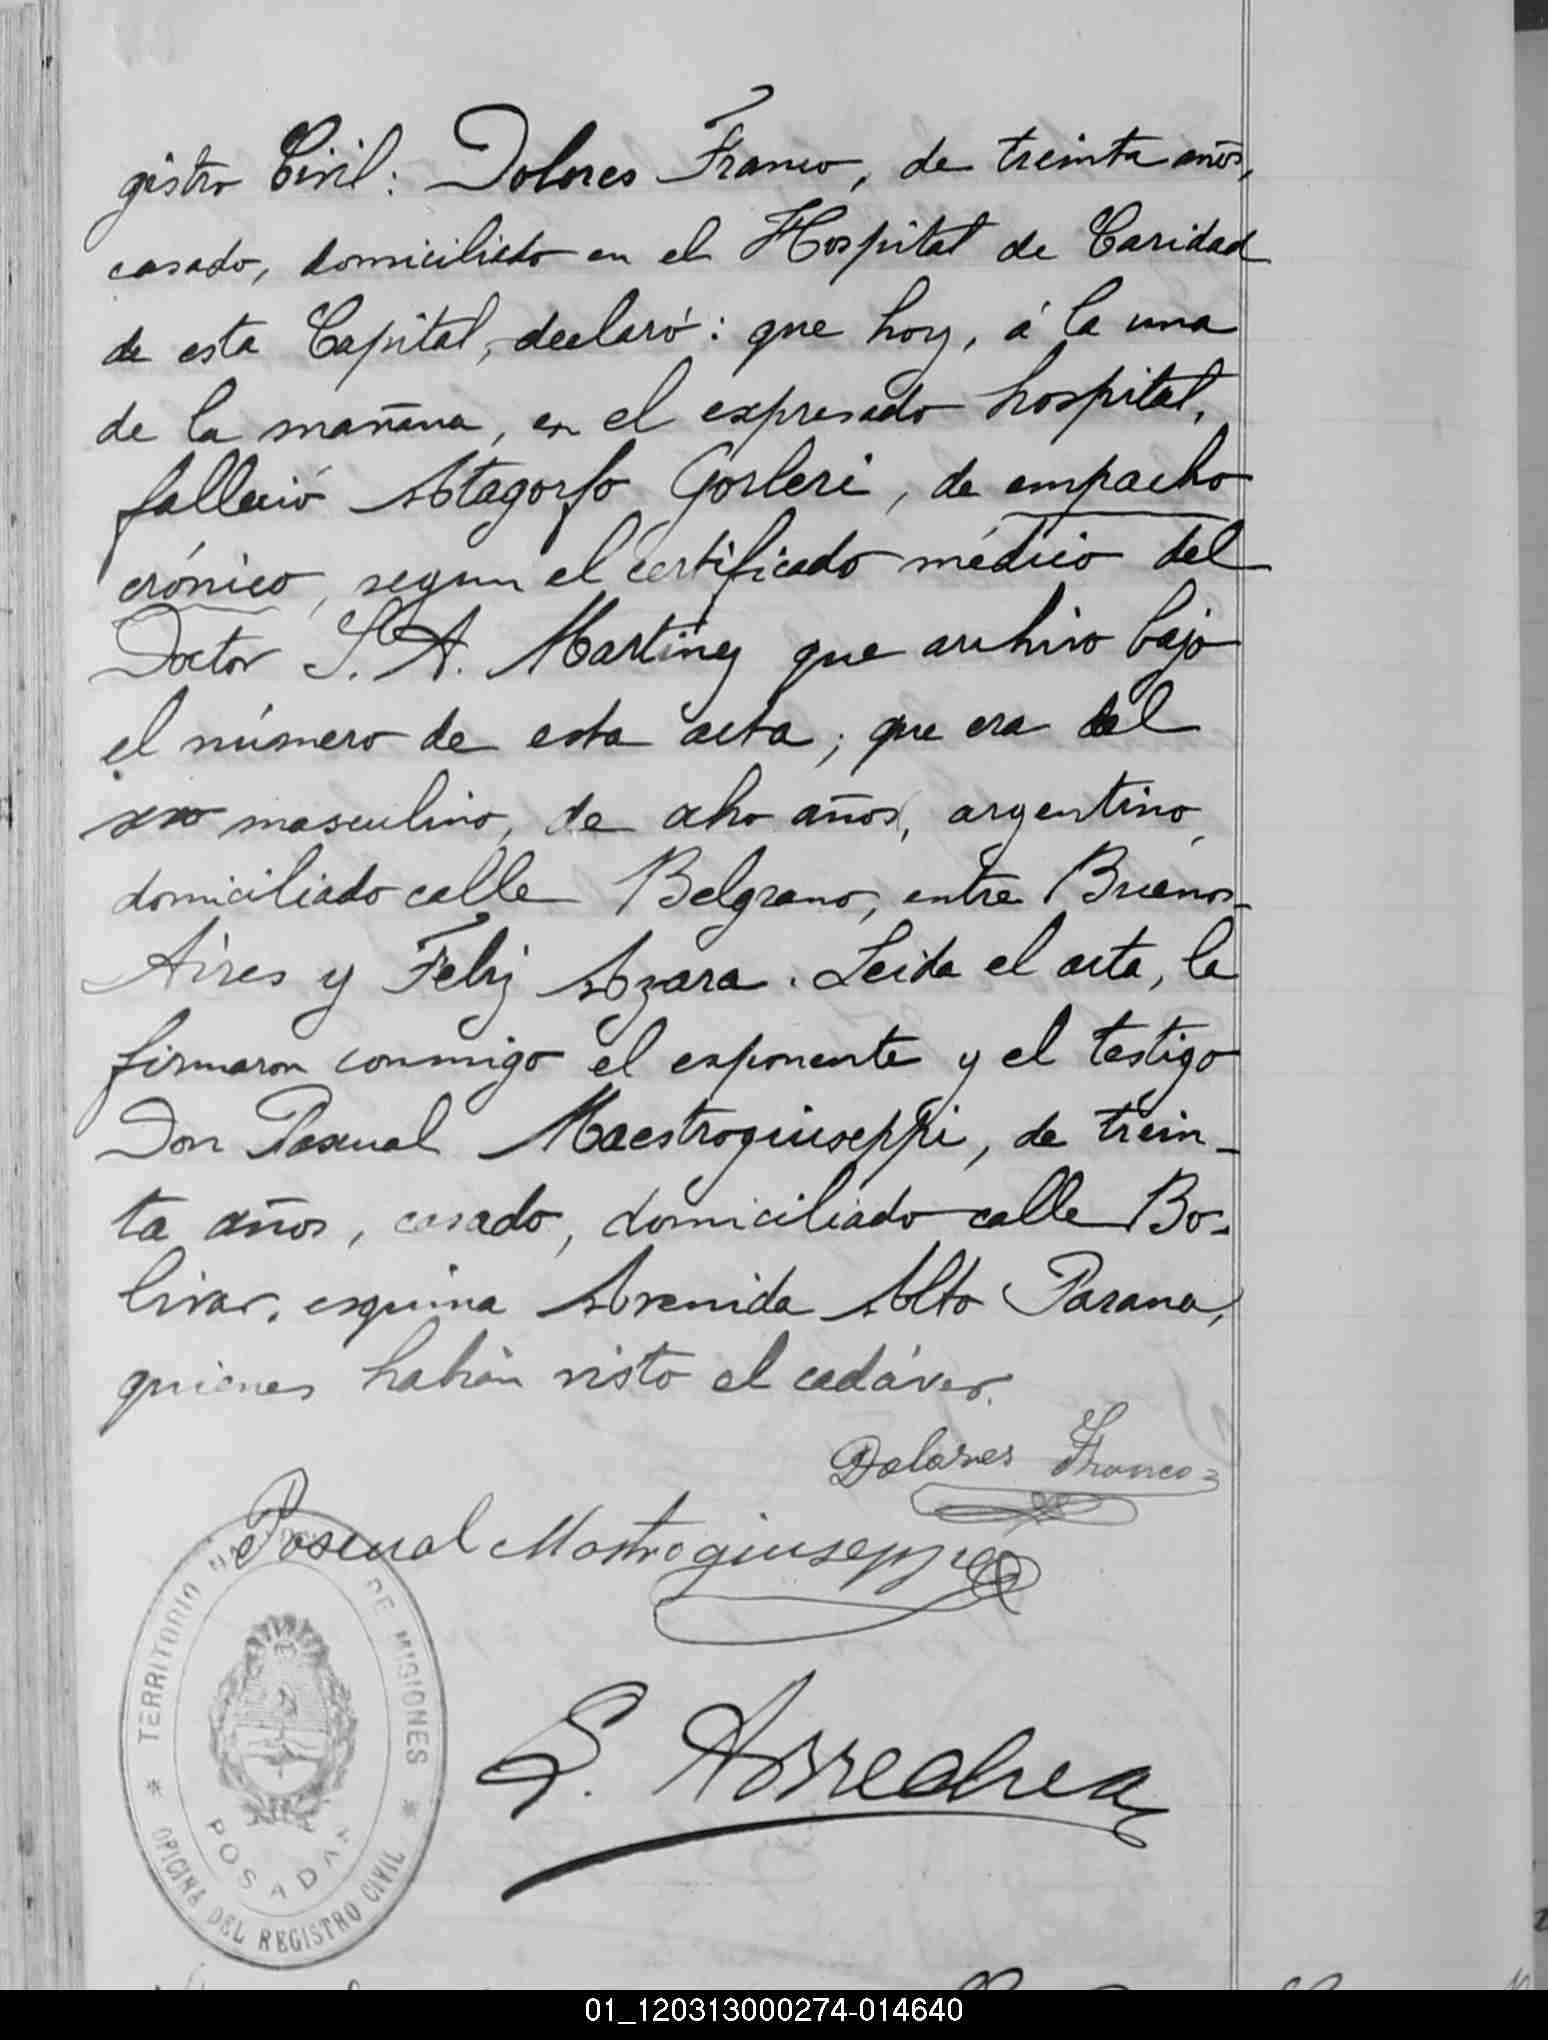 gistro Civil: Dolores Franco, de treinta años,
casado, domiciliado en el Hospital de Caridad
de esta Capital, declaró: que hoy, á la una
de la mañana, en el expresado hospital,
falleció Atagorfo Gorleri, de empacho
crónico, segun el certificado médico del
Doctor S. A. Martinez que archivo bajo
el número de esta acta; que era del
sexo masculino, de ocho años, argentino,
domiciliado calle Belgrano, entre Buenos-
Aires y Feliz Azara. Leida el acta, la
firmaron conmigo el exponente y el testigo
Don Pascual Maestrogiuseppi, de trein-
ta años, casado, domiciliado calle Bo-
livar, esquina Avenida Alto Parana,
quienes habian visto el cadáver.
Dolores Franco
Pascual Mastrogiuseppe
TERRITORIO NACIONAL DE MISIONES
POSADAS
OFICINA DEL REGISTRO CIVIL
S. Arrechea
01_120313000274-014640